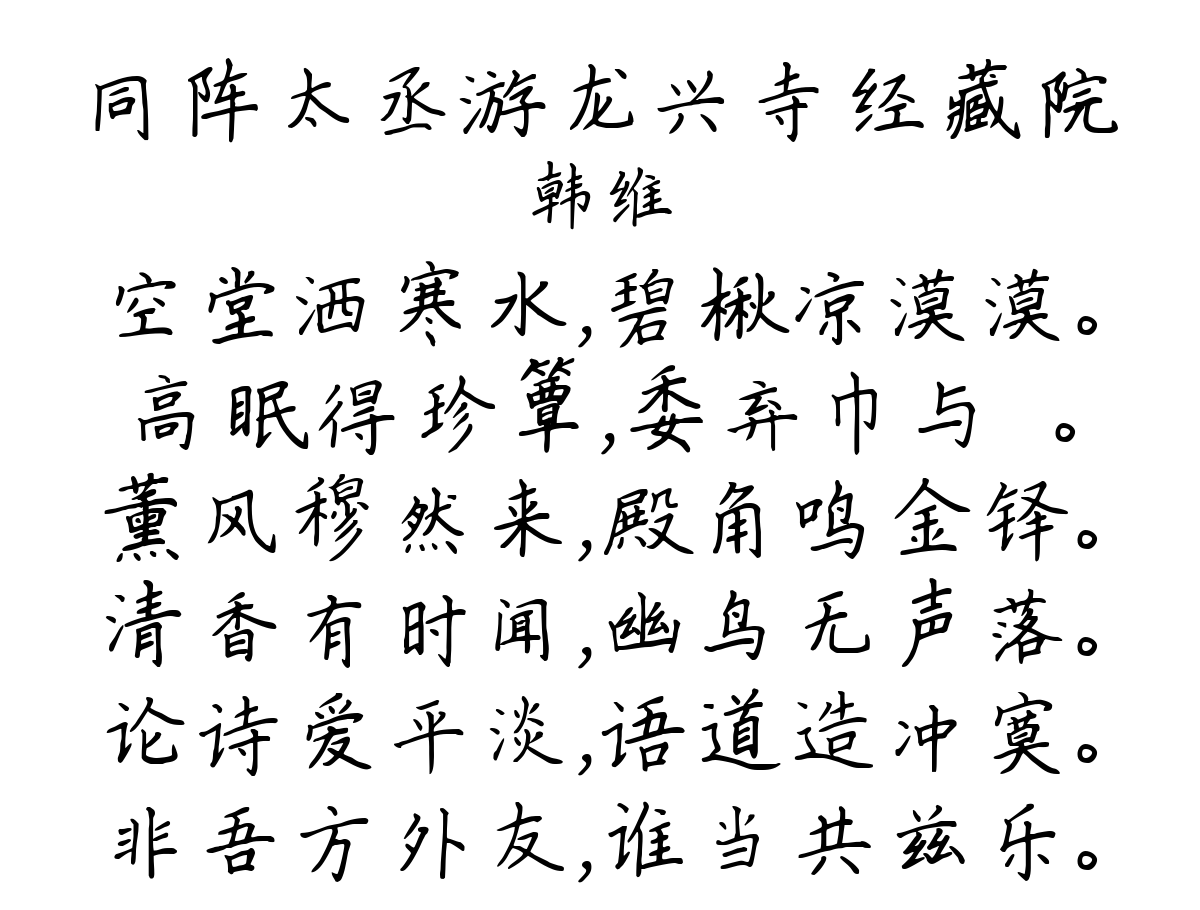 同阵太丞游龙兴寺经藏院
韩维
空堂洒寒水,碧楸凉漠漠。
高眠得珍簟,委弃巾与 。
薰风穆然来,殿角鸣金铎。
清香有时闻,幽鸟无声落。
论诗爱平淡,语道造冲寞。
非吾方外友,谁当共兹乐。